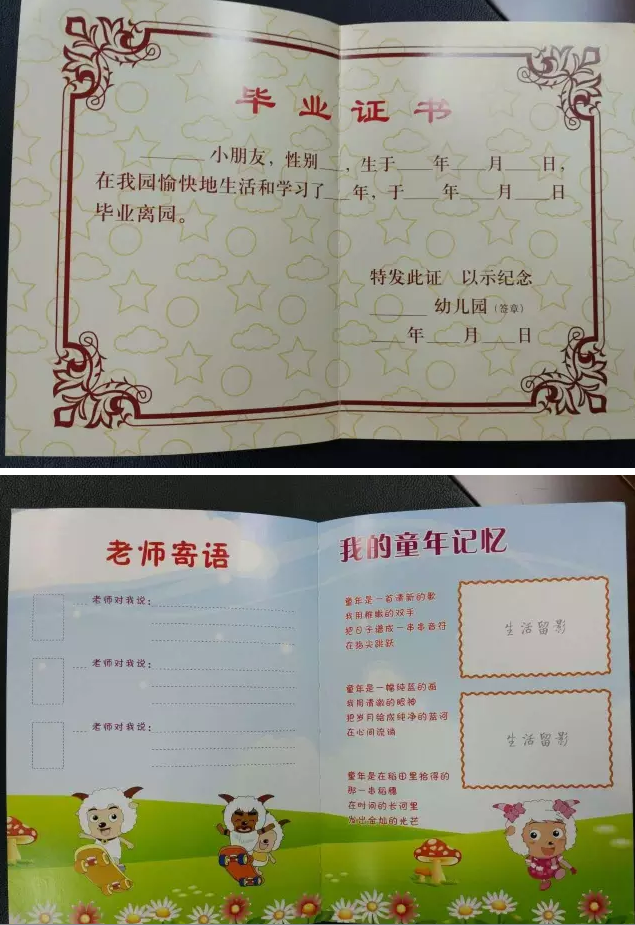 毕业证书
______ 小朋友，性别__，生于___年___月___日，
在我园愉快地生活和学习了__年，于___年___月___日
毕业离园。
特发此证 以示纪念
______ 幼儿园（签章）
___年___月___日
老师寄语
老师对我说：
老师对我说：
老师对我说：
我的童年记忆
童年是一首清新的歌
我用稚嫩的双手
把日子谱成一串串音符
在指尖跳跃
生活留影
童年是一幅纯蓝的画
我用清澈的眼神
把岁月绘成纯净的蓝河
在心间流淌
生活留影
童年是在稻田里拾得的
那一串稻穗
在时间的长河里
发出金灿的光芒